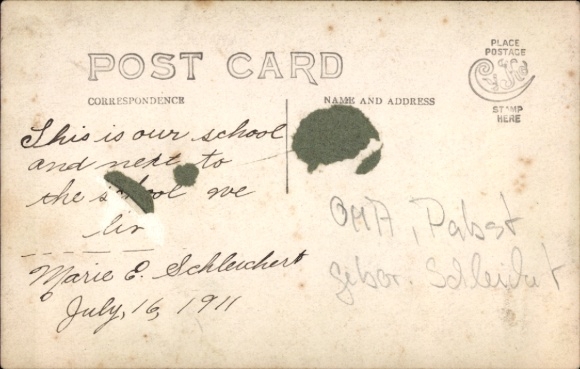 POST CARD
PLACE
POSTAGE
STAMP
HERE
CORRESPONDENCE
NAME AND ADDRESS
This is our school
and next to
the school we
liv
Marie E. Schleichert
July, 16, 1911
OMA, Pabst
gebor.